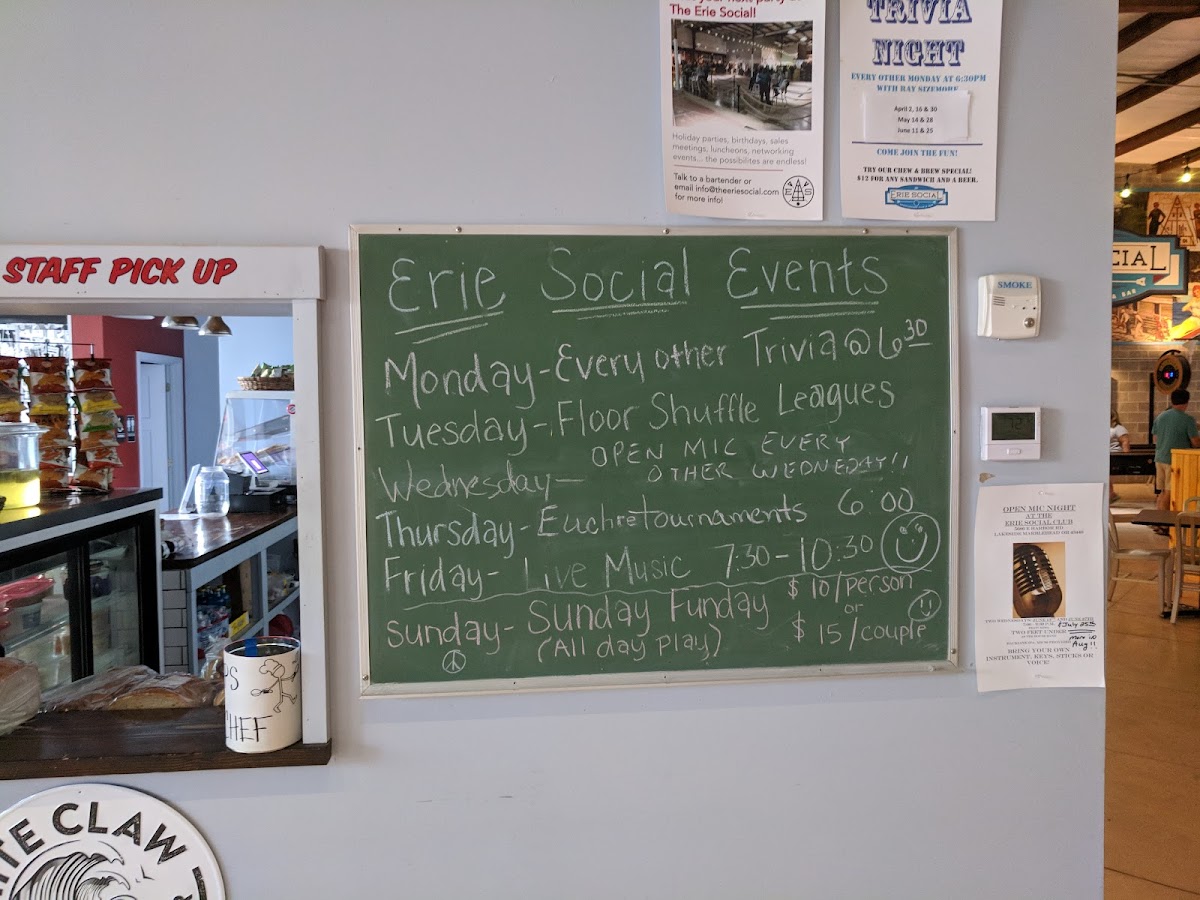 The Erie Social!
Holiday parties, birthdays, sales
meetings, luncheons, networking
events... the possibilites are endless!
Talk to a bartender or
email info@theeriesocial.com
for more info!
TRIVIA
NIGHT
EVERY OTHER MONDAY AT 6:30PM
WITH RAY SIZEMORE
April 2, 16 & 30
May 14 & 28
June 11 & 25
COME JOIN THE FUN!
TRY OUR CHEW & BREW SPECIAL!
$12 FOR ANY SANDWICH AND A BEER.
ERIE SOCIAL
STAFF PICK UP
Erie Social Events
Monday - Every other Trivia @ 6 30
Tuesday - Floor Shuffle Leagues
Wednesday - OPEN MIC EVERY
OTHER WEDNEDAY!!
Thursday - Euchre tournaments 6:00
Friday - Live Music 7:30 - 10:30
Sunday - Sunday Funday $10/person
or
(All day play) $15/couple
SMOKE
OPEN MIC NIGHT
AT THE
ERIE SOCIAL CLUB
TWO FEET UNDER
BRING YOUR OWN
INSTRUMENT, KEYS, STICKS OR
VOICE!
July 25th
more in
Aug!!
CIAL
CHEF
ITE CLAW